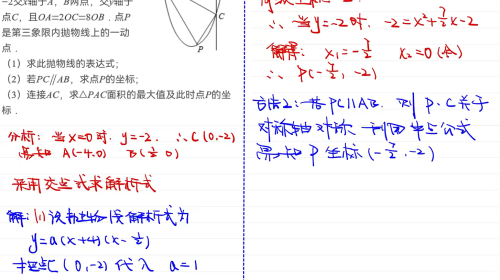 -2交x轴于A，B两点，交y轴于
点C，且OA=2OC=8OB．点P
是第三象限内抛物线上的一动
点．
（1）求此抛物线的表达式；
（2）若PC∥AB，求点P的坐标；
（3）连接AC，求△PAC面积的最大值及此时点P的坐
标．
C
P
分析：当x=0时，y=-2．∴C(0,-2)
易知 A(-4,0) B(½,0)
采用交点式求解析式
解：(1)设抛物线解析式为
y=a(x+4)(x-½)
把点C(0,-2)代入 a=1
∴当y=-2时．-2=x²+7/2x-2
解得：x₁=-7/2 x₂=0(舍)
∴P(-7/2,-2)
方法2：若PC∥AB．则P、C关于
对称轴对称 利用中点公式
易知P坐标(-7/2,-2)